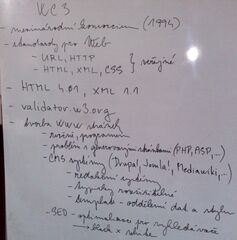 WC3
- mezinárodní konsorcium (1994)
- standardy pro Web
- URL, HTTP
- HTML, XML, CSS } veřejné
- HTML 4.01, XML 1.1
- validator.w3.org
- tvorba WWW stránek
- ruční, programem
- problém s generovanými stránkami (PHP, ASP,...)
- CMS systémy (Drupal, Joomla!, Mediawiki,...)
- redakční systémy
- typicky rozšiřitelné
- template - oddělení dat a stylu
- SEO - optimalizace pro vyhledávače
→ black x white